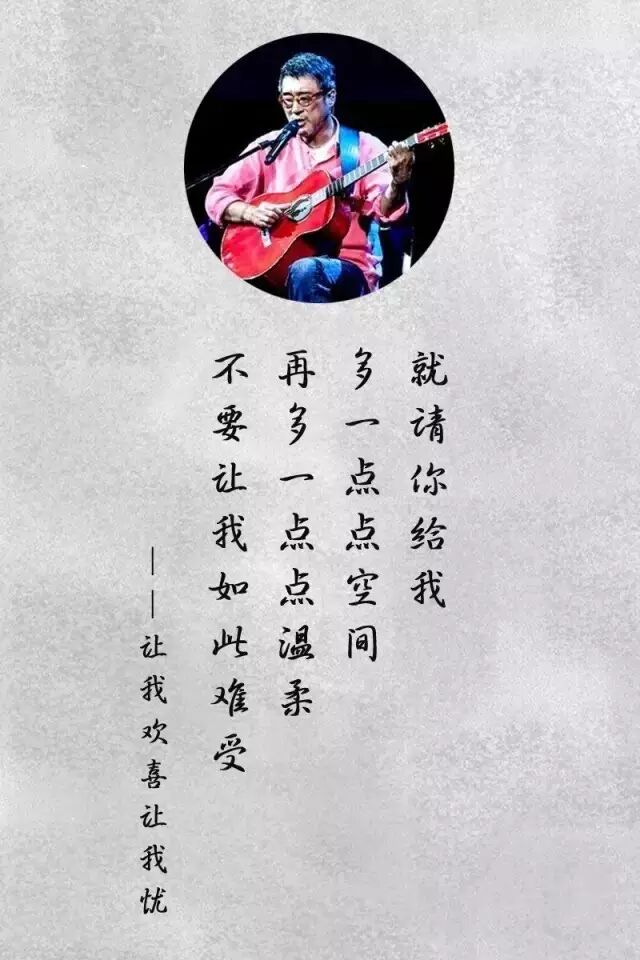 就请你给我
多一点点空间
再多一点点温柔
不要让我如此难受
——让我欢喜让我忧